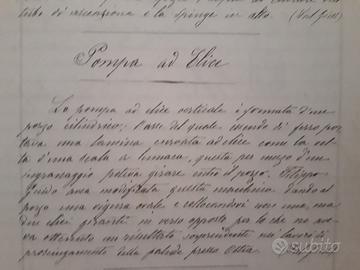 di ascensione e la spinge in alto. (Ved fig.)
Pompa ad Elice
La pompa ad elice verticale è formata d'un
pozzo cilindrico; l'asse del quale essendo di ferro por
tava una lamina curvata ad elice come la vol
ta d'una scala a lumaca, questa per mezzo d'un
ingranaggio poteva girare entro il pozzo. Filippo
Guido avea modificata questa macchina dando al
pozzo una figura ovale e collocandovi
elici giranti in verso opposto, per lo che ne ave
va ottenuto un risultato sorprendente nei lavori di
prosciugamento delle paludi presso Ostia.
subito